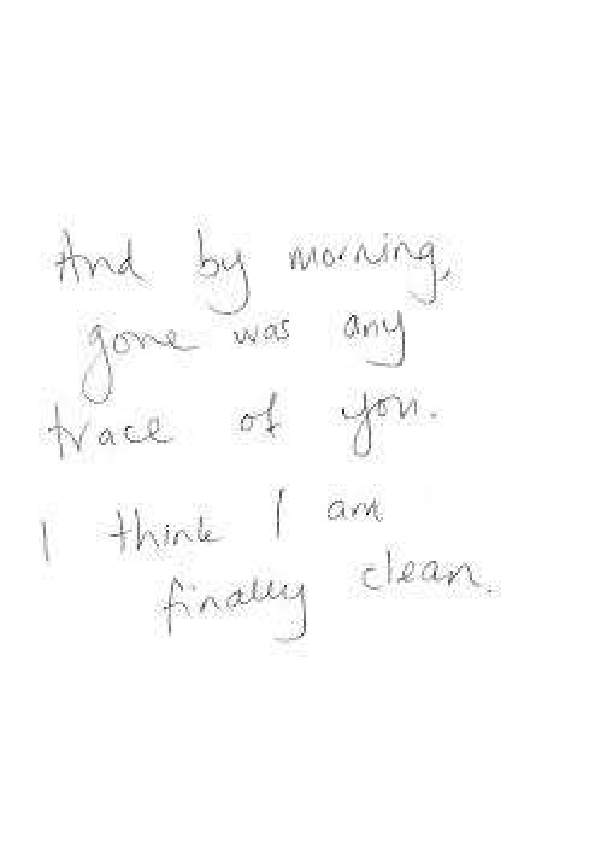 And by morning,
gone was any
trace of you.
I think I am
finally clean.